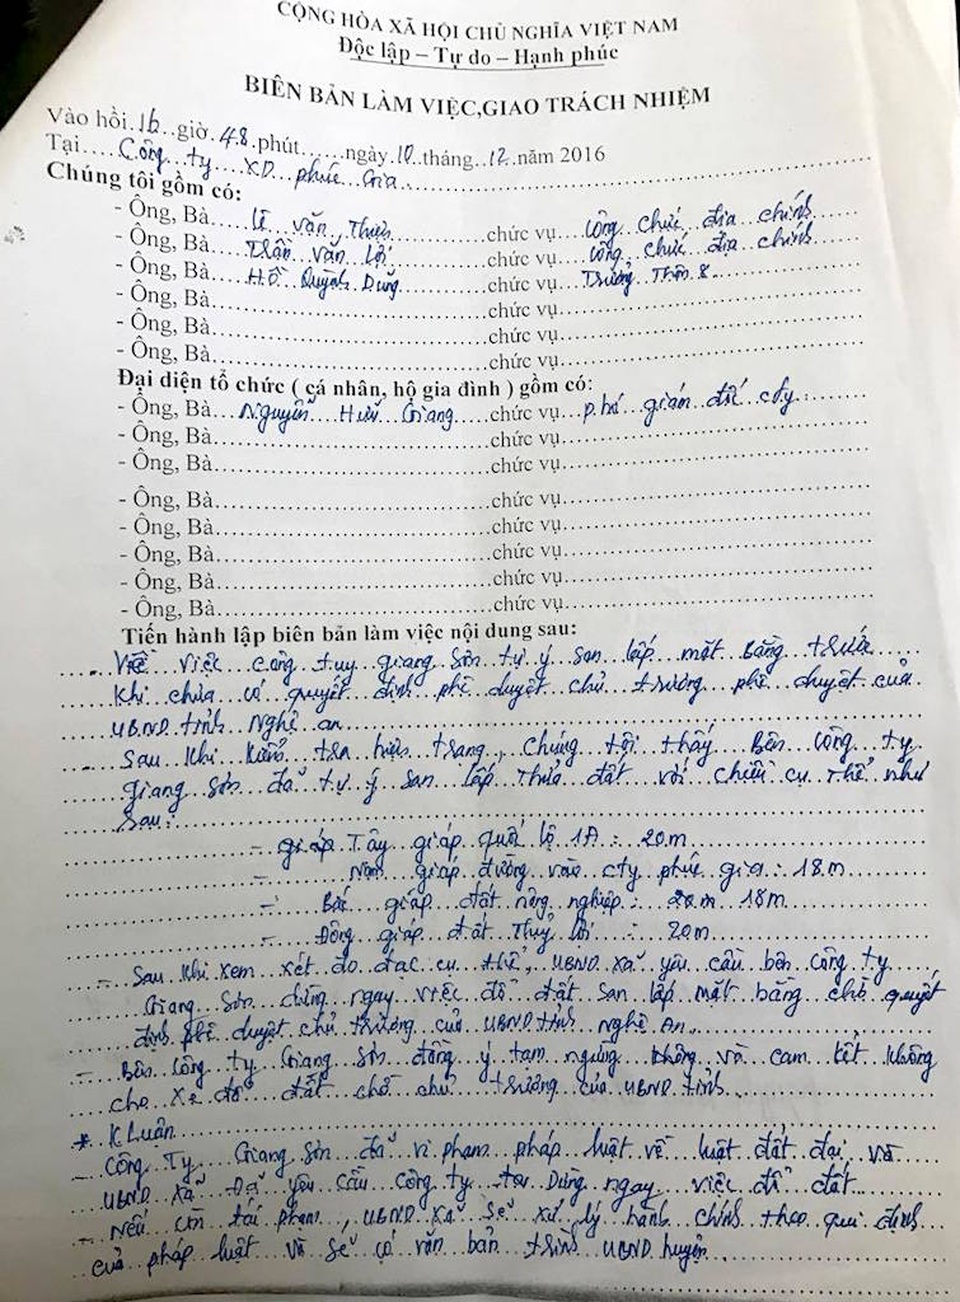 CỘNG HÒA XÃ HỘI CHỦ NGHĨA VIỆT NAM
Độc lập – Tự do – Hạnh phúc
BIÊN BẢN LÀM VIỆC,GIAO TRÁCH NHIỆM
Vào hồi..16..giờ.48.phút......ngày.10.tháng.12.năm 2016
Tại....Công...ty...XD...phúc...Gia
Chúng tôi gồm có:
- Ông, Bà....Lê...Văn...Thừa...chức vụ...Công chức địa chính
- Ông, Bà...Trần Văn Lợi...chức vụ...Công chức địa chính
- Ông, Bà...Hồ Quỳnh Dũng...chức vụ...Trưởng Thôn 8
- Ông, Bà...chức vụ...
- Ông, Bà...chức vụ...
- Ông, Bà...chức vụ...
Đại diện tổ chức ( cá nhân, hộ gia đình ) gồm có:
- Ông, Bà...Nguyễn Hữu Giang...chức vụ...phó giám đốc cty
- Ông, Bà...chức vụ...
- Ông, Bà...chức vụ...
- Ông, Bà...chức vụ...
- Ông, Bà...chức vụ...
- Ông, Bà...chức vụ...
- Ông, Bà...chức vụ...
- Ông, Bà...chức vụ...
Tiến hành lập biên bản làm việc nội dung sau:
- Về việc công tuy giang Sơn tự ý san lấp mặt Bằng trước
khi chưa có quyết định phê duyệt chủ trương phê duyệt của
UBND tỉnh Nghệ an
- Sau khi kiểm tra hiện trạng, chúng tôi thấy Bên công ty
giang Sơn đã tự ý san lấp thửa đất với chiều cụ thể như
sau:
- giáp Tây giáp quốc lộ 1A : 20m
- Nam giáp đường vào cty phúc gia : 18m
- Bắc giáp đất nông nghiệp : 20m 18m
- Đông giáp đất Thuỷ lợi : 20m
- Sau khi xem xét đo đạc cụ thể, UBND xã yêu cầu bên công ty
Giang Sơn dừng ngay việc đổ đất san lấp mặt bằng chờ quyết
định phê duyệt chủ trương của UBND tỉnh Nghệ An
- Bên Công ty Giang Sơn đồng ý tạm ngừng không và cam kết không
cho xe đổ đất chờ chủ trương của UBND tỉnh
* K Luận
- Công Ty Giang Sơn đã vi phạm pháp luật về luật đất đai và
UBND xã Đã yêu cầu Công ty Dừng ngay việc đổ đất
- Nếu còn tái phạm, UBND xã sẽ xử lý hành chính theo qui định
của pháp luật và sẽ có văn bản trình UBND huyện